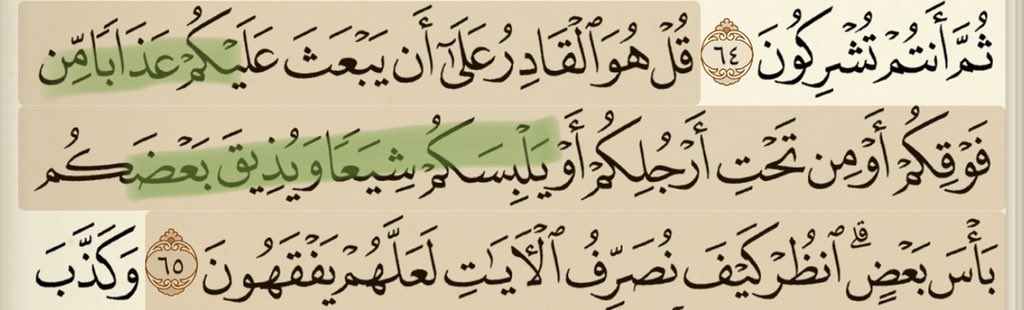 ثُمَّ أَنتُمْ تُشْرِكُونَ ٦٤ قُلْ هُوَ ٱلْقَادِرُ عَلَىٰٓ أَن يَبْعَثَ عَلَيْكُمْ عَذَابًا مِّن
فَوْقِكُمْ أَوْ مِن تَحْتِ أَرْجُلِكُمْ أَوْ يَلْبِسَكُمْ شِيَعًا وَيُذِيقَ بَعْضَكُم
بَأْسَ بَعْضٍ ۗ ٱنظُرْ كَيْفَ نُصَرِّفُ ٱلْـَٔايَـٰتِ لَعَلَّهُمْ يَفْقَهُونَ ٦٥ وَكَذَّبَ